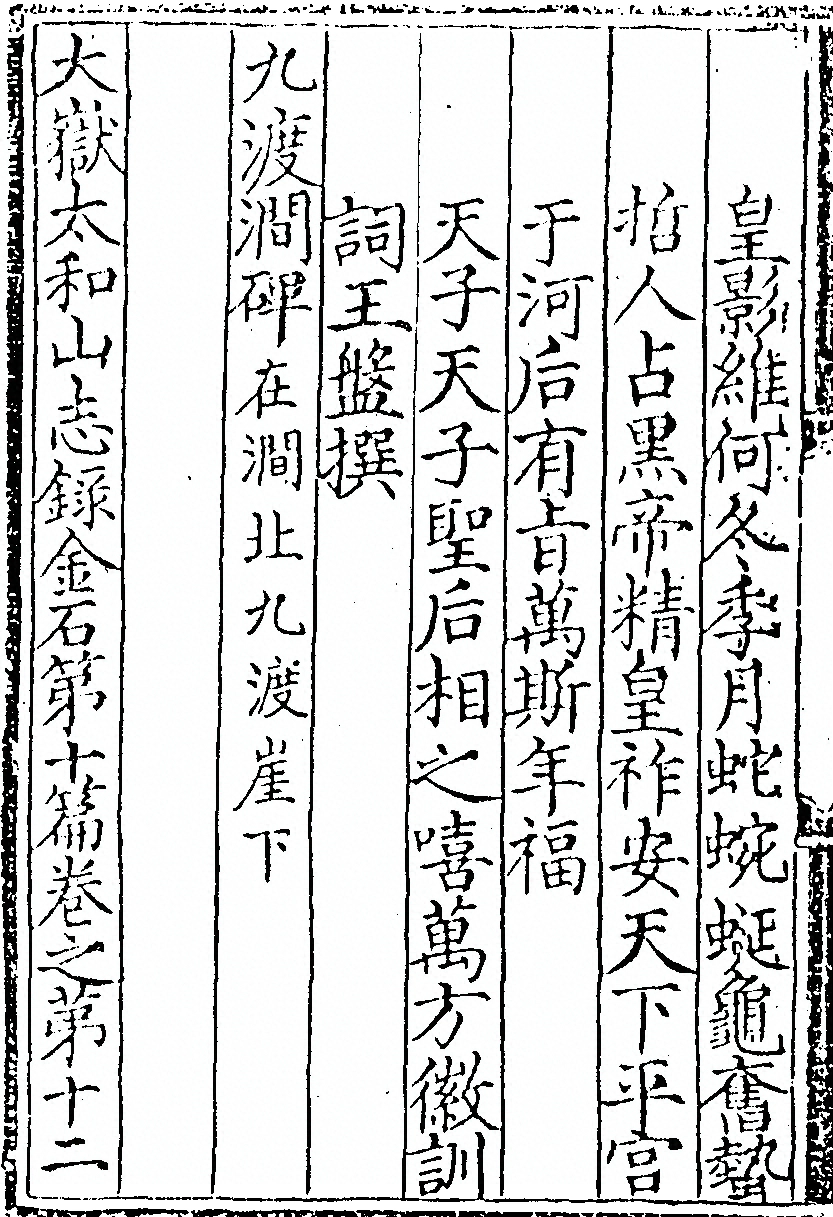 皇影維何冬季月蛇蜿蜒龜奮蟄
哲人占黑帝精皇祚安天下平宫
于河后有旨萬斯年福
天子天子聖后相之嘻萬方徽訓
詞王盤撰
九渡澗碑在澗北九渡崖下
大嶽太和山志録金石第十篇卷之第十二